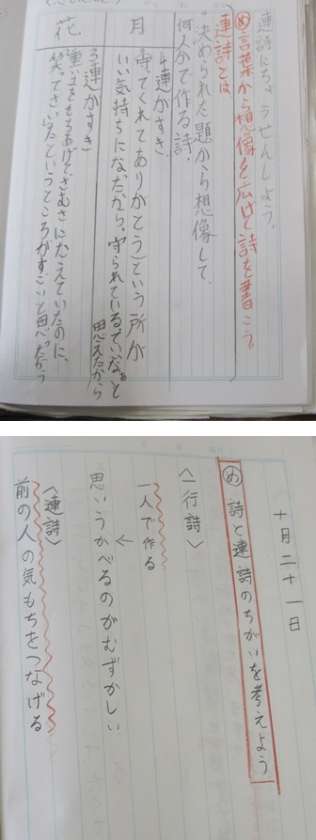 連詩にちょうせんしよう。
め言葉から想像を広げて詩を書こう。
連詩とは
・決められた題から想像して、
何人かで作る詩。
月
4連がすき
守ってくれてありがとうという所が
いい気持ちになったから、守られているていいなぁと
思えたから
花
3連がすき
重い土をもちあげてさむさにたえていたのに、
笑ってさいたというところがすごいと思ったから
十月二十一日
め 詩と連詩のちがいを考えよう
〈一行詩〉
一人で作る
↓
思いうかべるのがむずかしい
〈連詩〉
前の人の気もちをつなげる